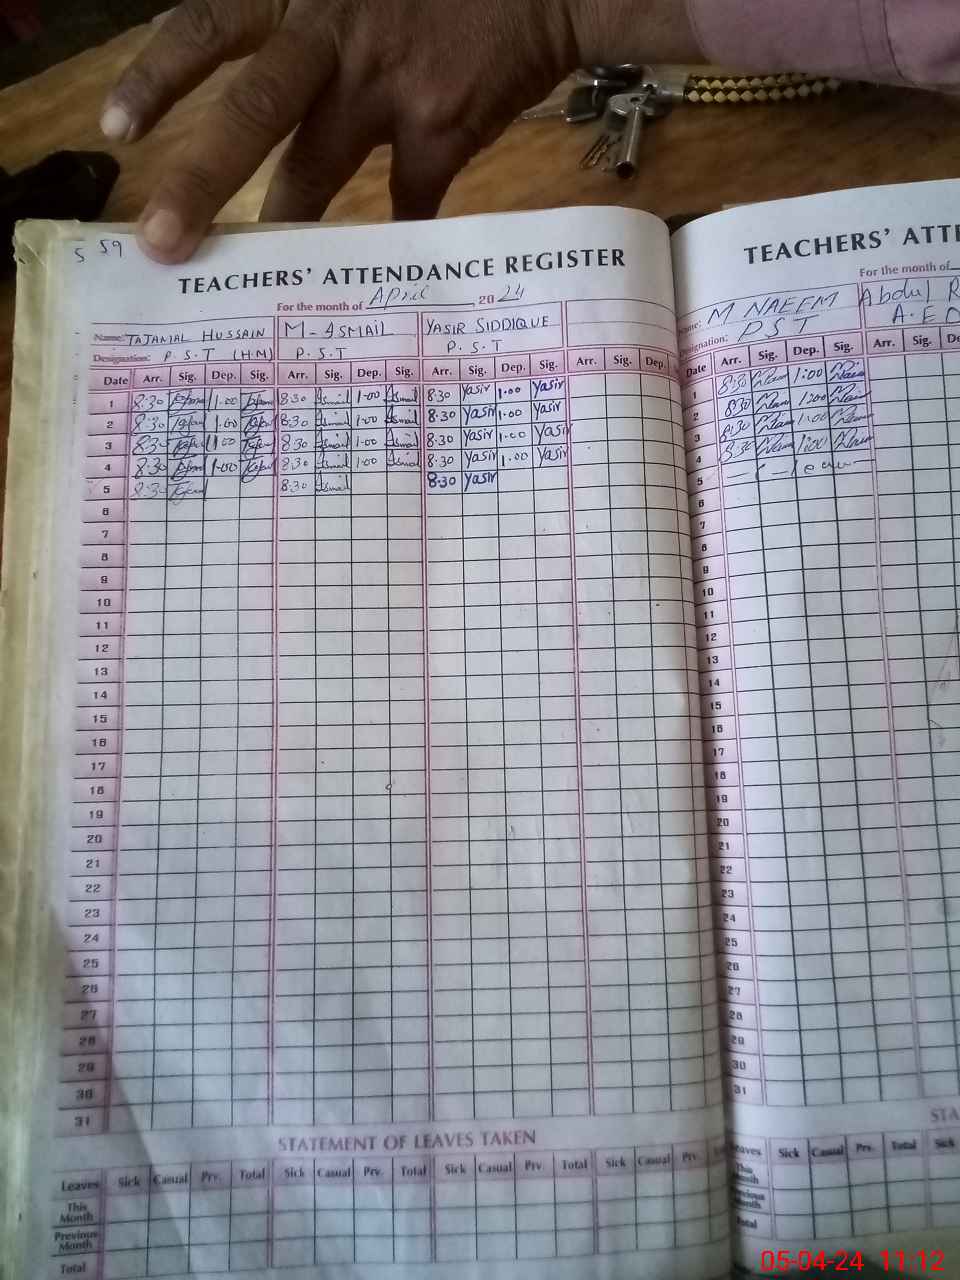 5 59
TEACHERS' ATTENDANCE REGISTER
For the month of April, 2024
Name: TAJAMAL HUSSAIN M-ISMAIL YASIR SIDDIQUE
Designation: P.S.T (H.M) P.S.T P.S.T
Date Arr. Sig. Dep. Sig. Arr. Sig. Dep. Sig. Arr. Sig. Dep. Sig. Arr. Sig. Dep.
1 8:30 1.00 8:30 Ismail 1.00 Ismail 8:30 Yasir 1.00 Yasir
2 8:30 1.00 8:30 Ismail 1.00 Ismail 8:30 Yasir 1.00 Yasir
3 8:30 1.00 8:30 Ismail 1.00 Ismail 8:30 Yasir 1.00 Yasir
4 8:30 1.00 8:30 Ismail 1.00 Ismail 8:30 Yasir 1.00 Yasir
5 8:30 8:30 Ismail 8:30 Yasir
6
7
8
9
10
11
12
13
14
15
16
17
18
19
20
21
22
23
24
25
26
27
28
29
30
31
STATEMENT OF LEAVES TAKEN
Leaves Sick Casual Prv. Total Sick Casual Prv. Total Sick Casual Prv. Total Sick Casual Prv.
This Month
Previous Month
Total
TEACHERS' ATTE
For the month of
Name: M NAEEM Abdul R
Designation: PST A.E
Date Arr. Sig. Dep. Sig. Arr. Sig. De
1 8:30 1:00
2 8:30 1:00
3 8:30 1:00
4 8:30 1:00
5
6
7
8
9
10
11
12
13
14
15
16
17
18
19
20
21
22
23
24
25
26
27
28
29
30
31
STA
Leaves Sick Casual Prv. Total Sick
This Month
Previous Month
Total
05-04-24 11:12